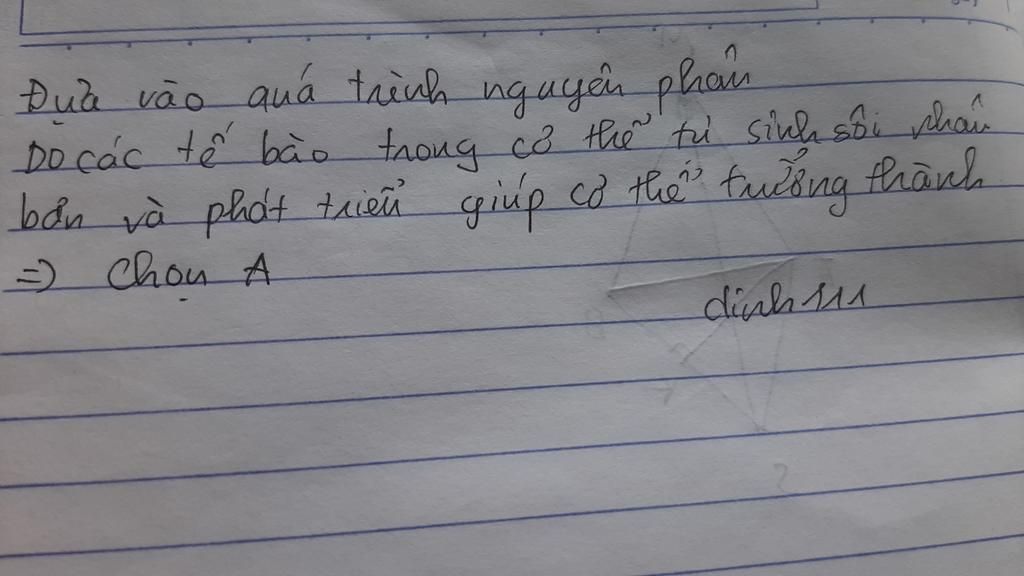 Dựa vào quá trình nguyên phân
Do các tế bào trong cơ thể tự sinh sôi nhân
bản và phát triển giúp cơ thể trưởng thành
=> Chọn A
dinh111